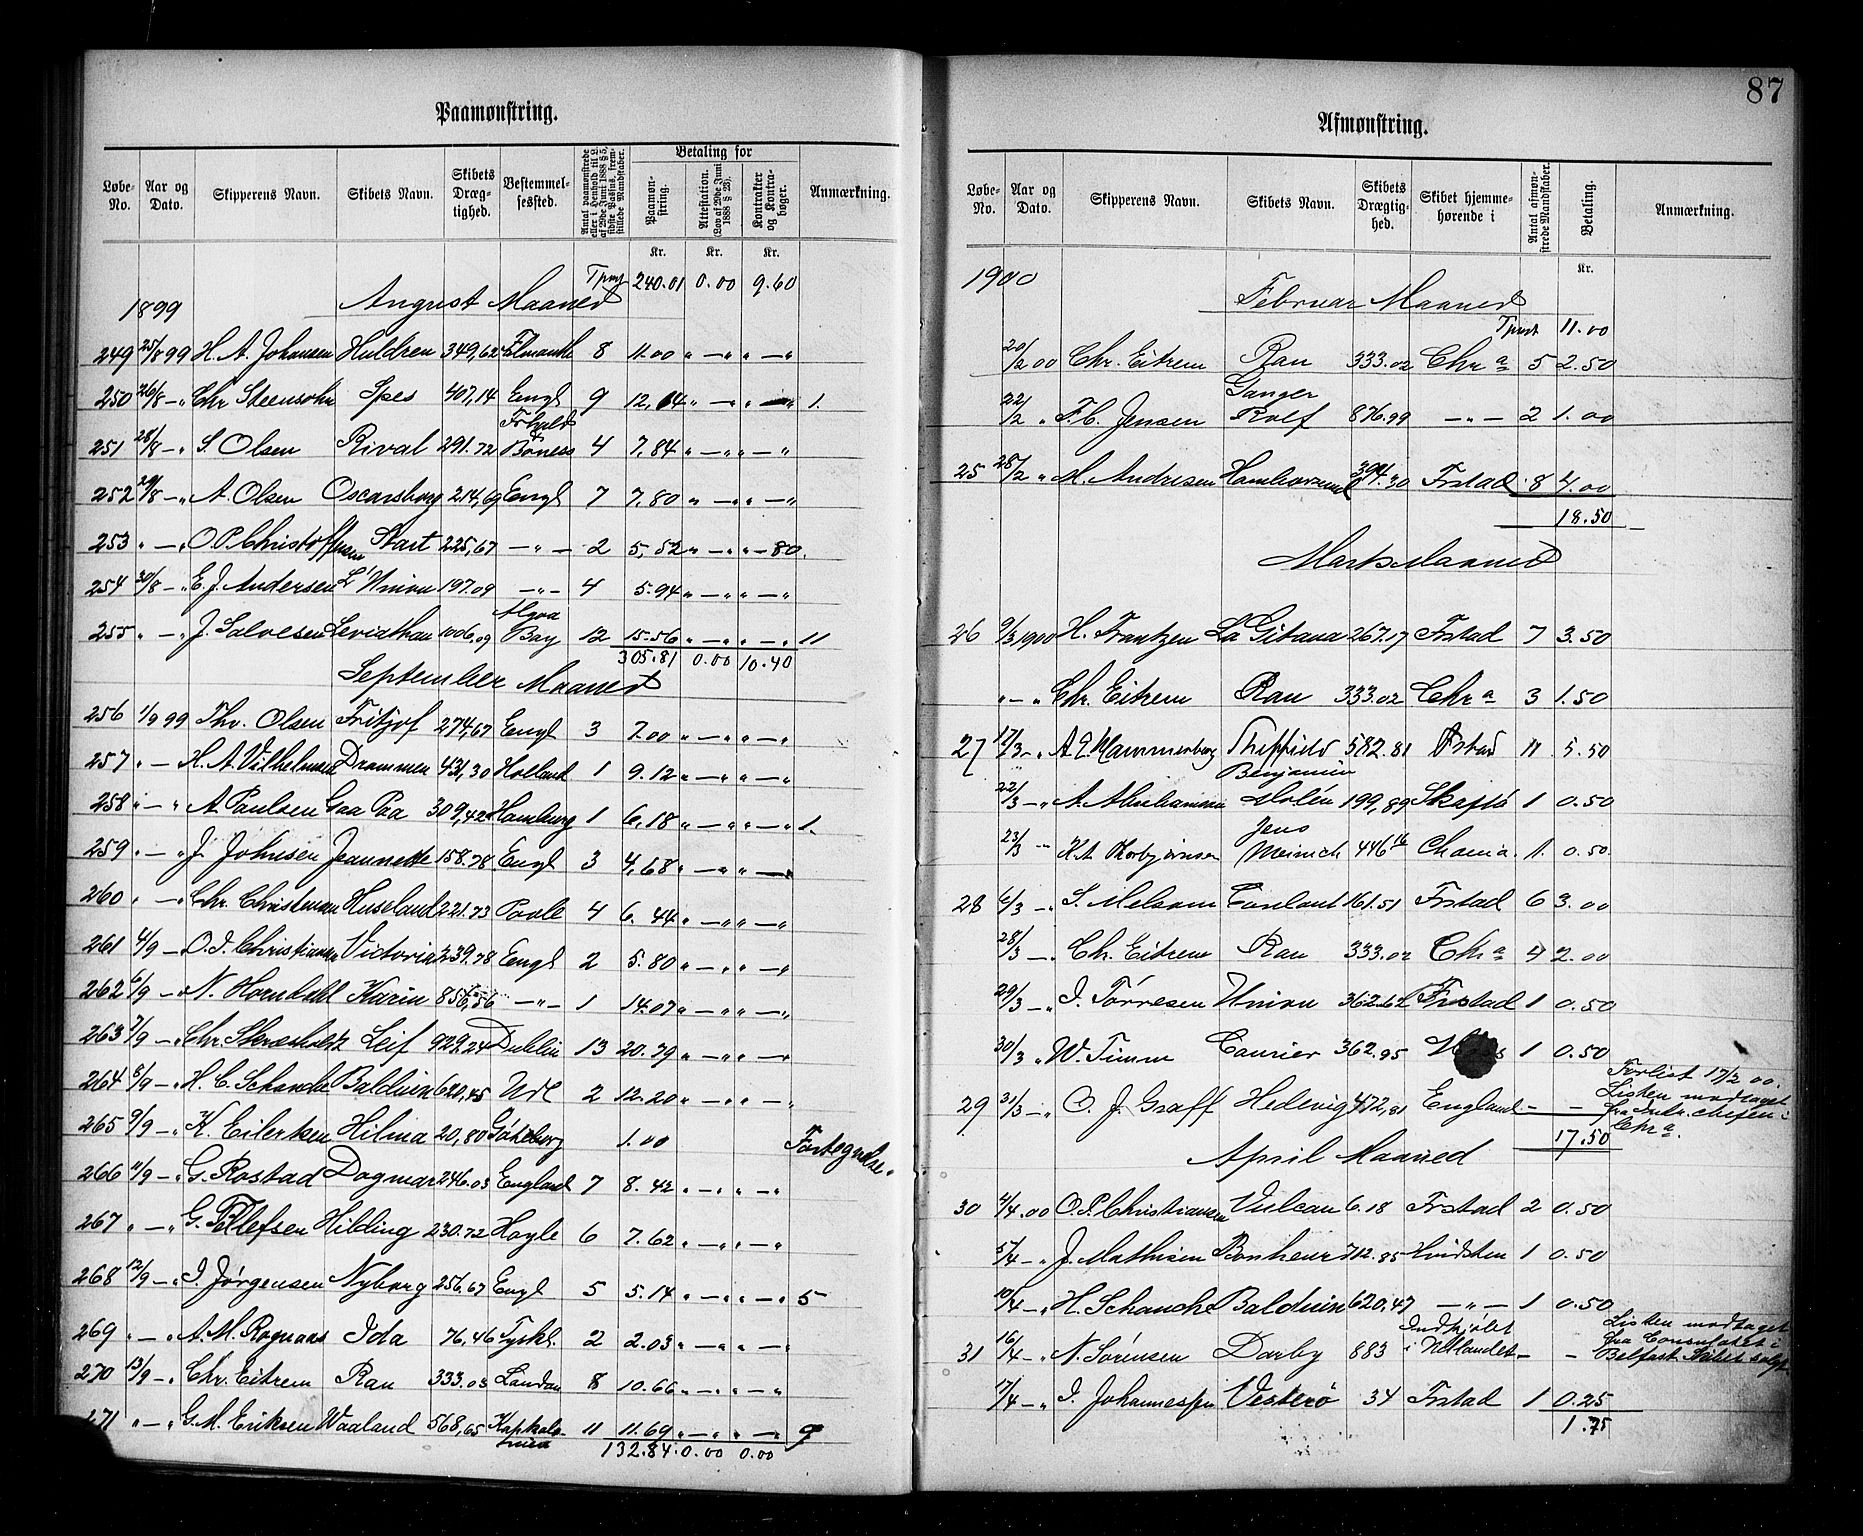 Paamønstring.
Løbe-No. | Aar og Dato. | Skipperens Navn. | Skibets Navn. | Skibets Dræg-tighed. | Bestemmel-sessted. | Antal paamønstrede eller i Henhold til L. af 29de Juni 1888 § 5, sidste Passus, frem-stillede Mandskaber. | Betaling for | Paamøn-string. | Attestation. (Lov af 29de Juni 1888 § 26). | Kontrakter og Kontra-bøger. | Anmærkning.
Kr. | Kr. | Kr.
Tpnrt 240.01 0.00 9.60
1899 August Maaned
249 25/8 99 H. A. Johansen Huldren 349,62 8 11.00 " — " " — "
250 26/8 — " Chr Steensohn Spes 407,14 Engl 9 12,04 " — " " — " 1.
251 28/8 — " S. Olsen Rival 291.72 Boness 4 7,84 " — " " — "
252 29/8 — " A. Olsen Oscarsborg 214,69 Engl 7 7.80 " — " " — "
253 " — " O. P. Christoffersen Start 225,67 — " — 2 5,52 " — " " — 80.
254 30/8 — " E. J. Andersen L'Union 197.09 — " — 4 5.94 " — " " — "
255 " — " J. Salvesen Leviathan 1006,09 Algoa Bay 12 15.56 " — " " — " 11
305.81 0.00 10.40
September Maaned
256 1/9 99 Thv. Olsen Fritjof 274,67 Engl 3 7.00 " — " " — "
257 " — " H. A. Vilhelmsen Drammen 431,30 Holland 1 9.12 " — " " — "
258 " — " A. Paulsen Gaa Paa 309,42 Hamburg 1 6,18 " — " " — " 1.
259 " — " J. Johnsen Jeannette 158.78 Engl 3 4,68 " — " " — "
260 " — " Chr. Christensen Huseland 221.73 Poole 4 6.44 " — " " — "
261 4/9 — " O. J. Christiansen Victoria 239.78 Engl 2 5.80 " — " " — "
262 6/9 — " N. Horndahl Karin 856,56 — " — 1 14.07 " — " " — "
263 7/9 — " Chr. Skræsholtz Leif 929,24 Dublin 13 20.79 " — " " — "
264 8/9 — " H. C. Schanche Balduin 620,45 Udl 2 12.20 " — " " — "
265 9/9 — " K. Eilertsen Hilma 20,80 Göteborg 1.00 Fortegnelse.
266 11/9 — " G. Rostad Dagmar 246.03 England 7 8.42 " — " " — "
267 " — " G. Tellefsen Hilding 230.72 Hayle 6 7.62 " — " " — "
268 12/9 — " J. Jørgensen Nyborg 256.67 Engl 5 5.14 " — " " — " 5
269 " — " A. M. Rognaas Ida 76,46 Tyskl. 2 2.03 " — " " — "
270 13/9 — " Chr. Eitrem Ran 333.03 London 8 10.66 " — " " — "
271 " — " G. M. Eriksen Waaland 568,65 Kapkolonien 11 11.69 " — " " — " 9
132.84 0.00 0.00
87
Afmønstring.
Løbe-No. | Aar og Dato. | Skipperens Navn. | Skibets Navn. | Skibets Drægtig-hed. | Skibet hjemme-hørende i | Antal afmøn-strede Mandskaber. | Betaling. | Anmærkning.
Kr.
1900 Februar Maaned
Tpnrt 11.00
20/2 00 Chr. Eitrem Ran 333.02 Chr a 5 2.50
22/2 " F. C. Jensen Ganger Rolf 876.99 — " — 2 1.00
25 28/2 " M. Andresen 394.30 Frstad 8 4.00
18.50
Marts Maaned
26 9/3 1900 H. Frantzen La Gitana 267.17 Frstad 7 3.50
" — " Chr. Eitrem Ran 333.02 Chr a 3 1.50
27 17/3 — " A. G. Hammerborg Sheffield 582.81 Frstad 11 5.50
22/3 — " A. Abrahamsen Benjamin Molén 199,89 Skaftö 1 0.50
23/3 — " K. A. Thorbjørnsen Jens Meinich 446 16 Chania. 1. 0.50.
28 6/3 — " S. Melsom Conland 161.51 Frstad 6 3.00
28/3 — " Ch. Eitrem Ran 333.02 Chr a 4 2.00
29/3 — " J. Törresen Union 362.62 Frstad 1 0.50
30/3 " W. Timm Courier 362.95 1 0.50
29 31/3 — " O. J. Graff Hedevig 472,81 England — — Forlist 17/2 00. Listen modtaget fra Chefen i Chr a.
17.50
April Maaned
30 4/4.00 O. P. Christiansen Vulcan 6.18 Frstad 2 0.50
5/4 — " J. Mathisen Bonheur 712.85 Hvidsten 1 0.50
10/4 — " H. Schanche Balduin 620.47 — " — 1 0.50
31 16/4 — " N. Sörensen Darby 883 Indkjøbt i Udlandet — — Listen modtaget fra Consulatet i Belfast.
17/4 — " J. Johannessen Vesterö 34 Frstad 1 0.25
1.75